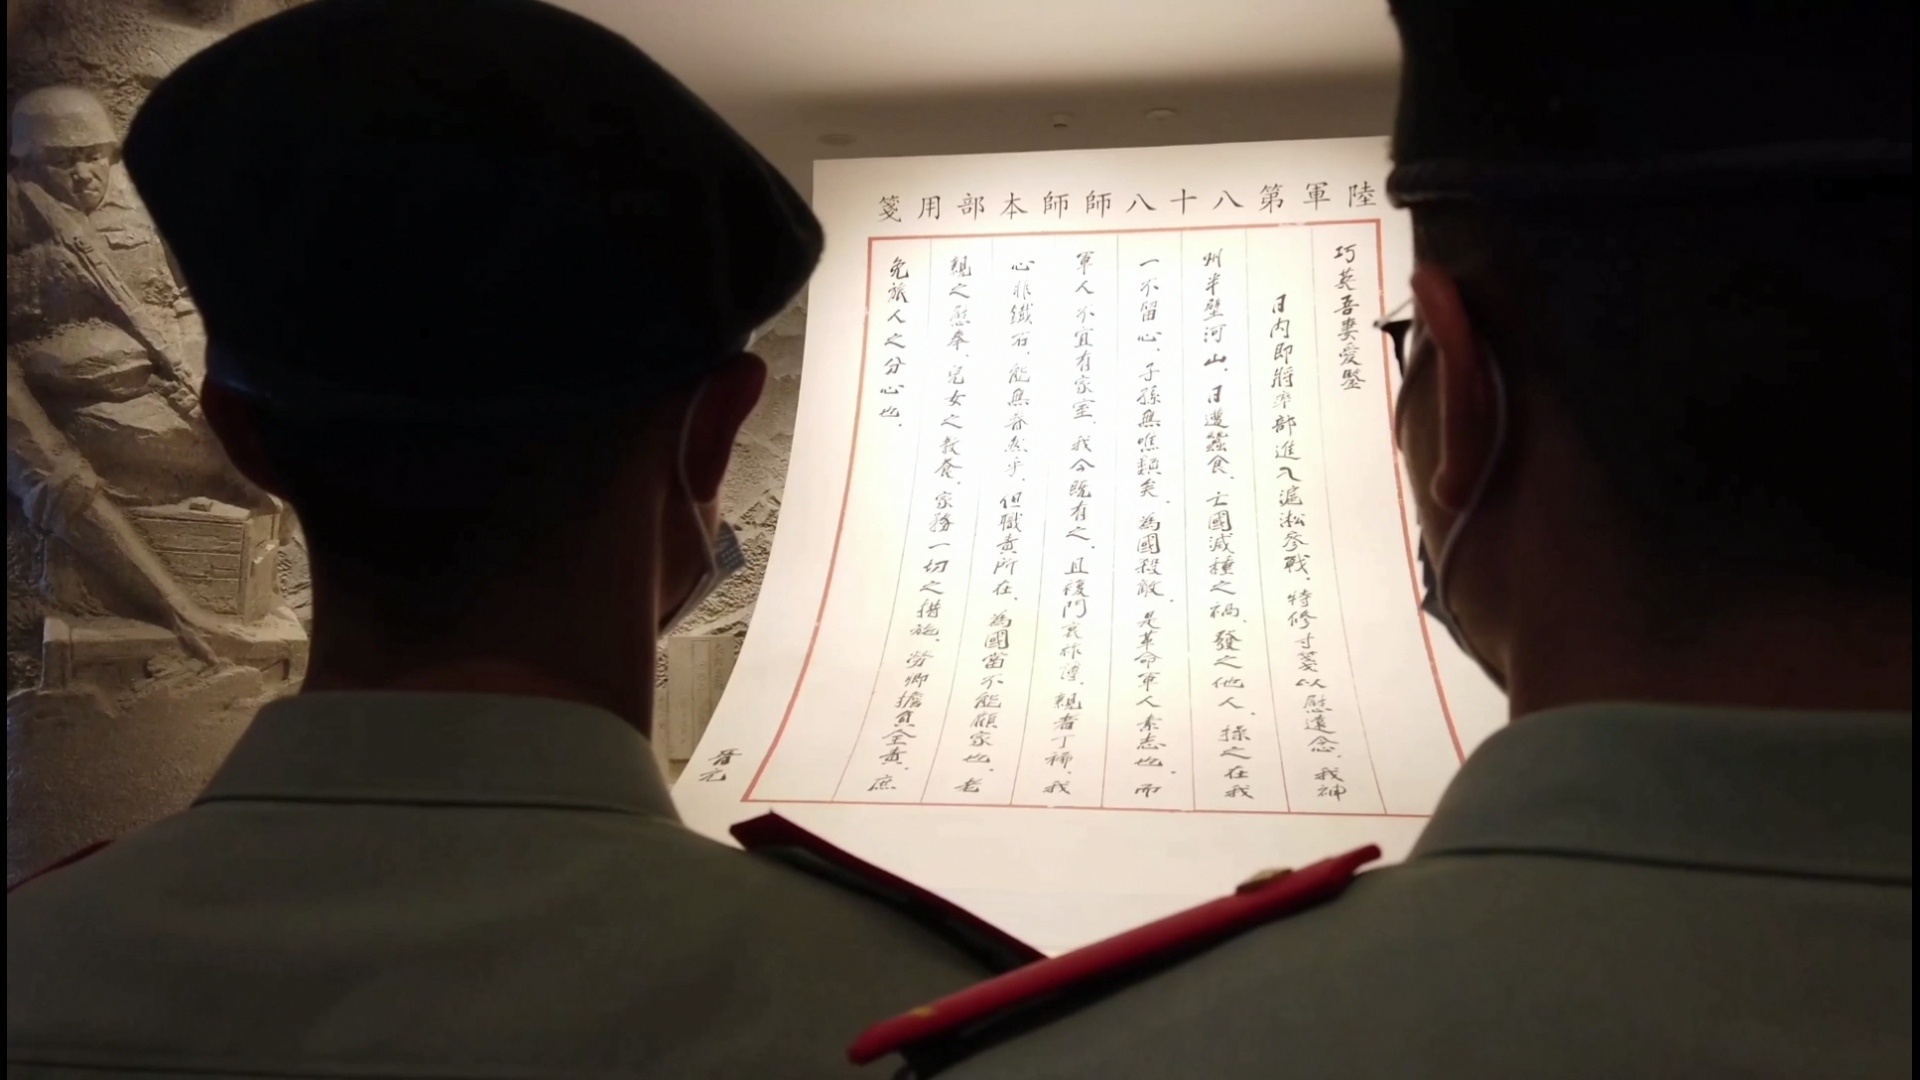 陸軍第八十八師師本部用箋
巧英吾妻愛鑒
日内即將率部進入滬淞參戰、特修寸箋以慰遠念、我神
州半壁河山、日遭蠶食、亡國滅種之禍、發之他人、操之在我
一不留心、子孫無噍類矣、為國殺敵、是革命軍人素志也、而
軍人不宜有家室、我今既有之、且復門衰祚薄、親者丁稀、我
心非鐵石、能無眷然乎、但職責所在、為國當不能顧家也、老
親之慰奉、兒女之教養、家務一切之措施、勞卿擔負全責、庶
免旅人之分心也、
晉元